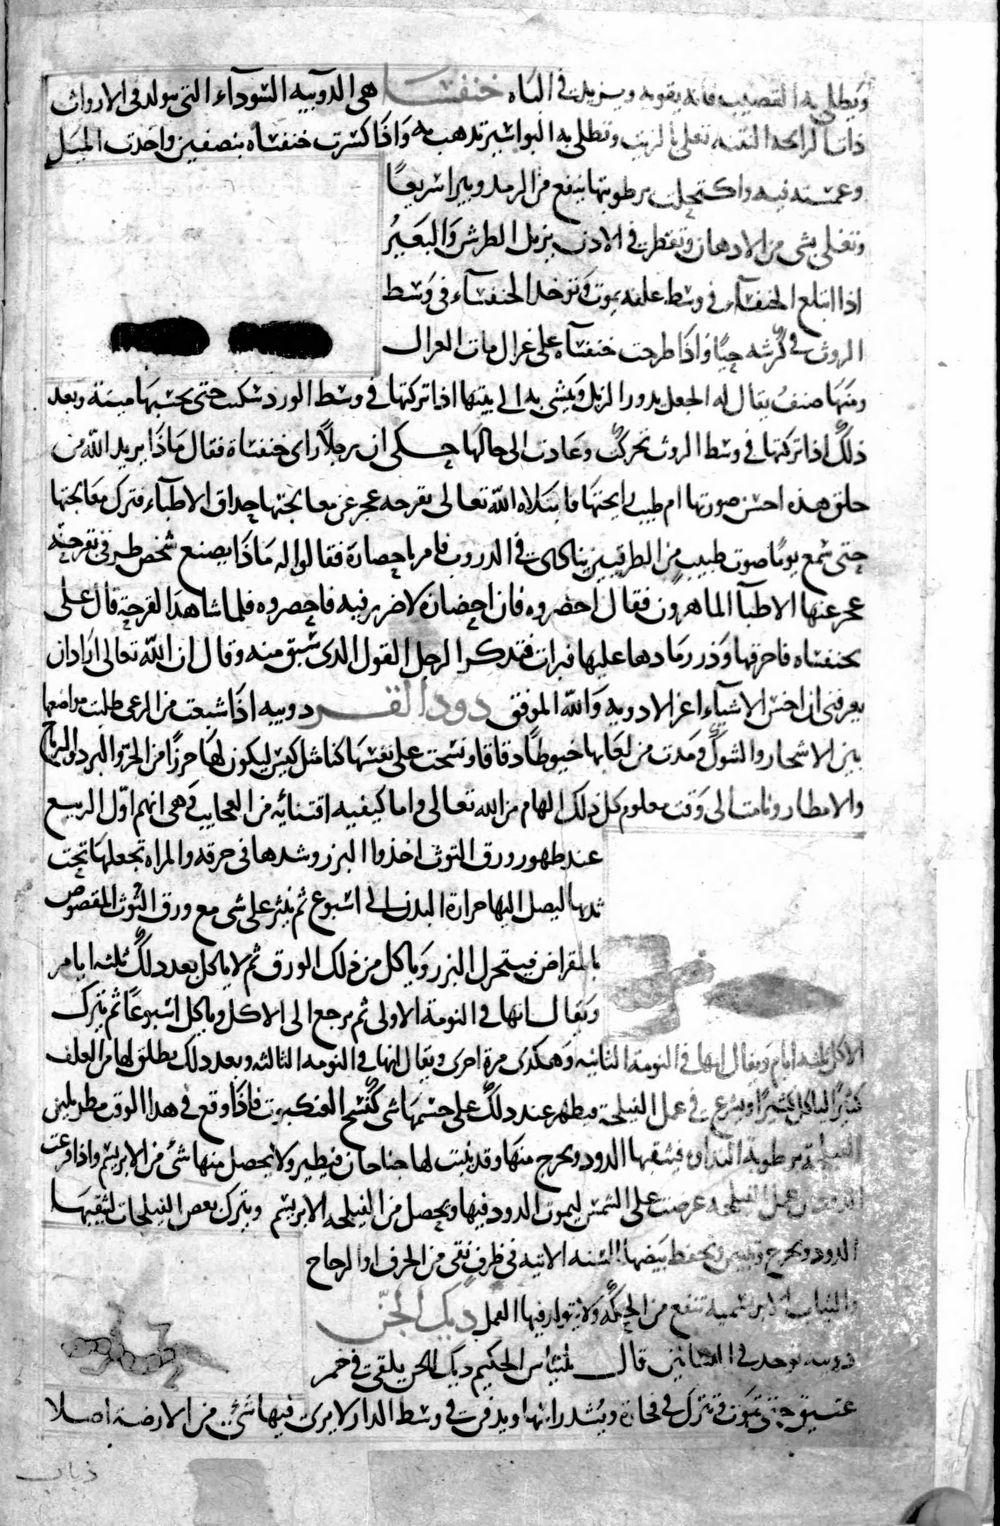 ويطلى به القضيب فانه يقويه ويزيد في الباه خنفسا هي الدويبه السوداء التي يتولد في الارواث
ذات الرائحه النتنه تغلى بالزيت وتطلى به البواسير تذهب به واذا كسرت خنفساه بنصفين واخذت الميل
وغمسته فيه واكتحلت برطوبتها ينفع من الرمد ويبرا سريعًا
وتغلى بشي من الادهان وتقطر في الاذن يزيل الطرش والبعير
اذا ابتلع الخنفساء في وسط علفه يموت وتوخد الخنفساء في وسط
الروث في كرشه حيًا واذا طرحت خنفساه على غزال مات الغزال
ومنها صنف يقال له الجعل يدور الزبل ويمشى به الى بيتها اذا تركتها في وسط الورد سكنت حتى يحسبها ميتة وبعد
ذلك اذا تركتها في وسط الروث تحركت وعادت الى حالها حكى ان رجلا راى خنفساة فقال ماذا يريد الله من
خلق هذه احسن صورتها ام طيب رايحتها فابتلاه الله تعالى بقرحه عجز عن معالجتها حذاق الاطباء فترك معالجتها
حتى سمع يومًا صوت طبيب من الطرقيين ينادى في الدروب فامر باحضاره فقالوا له ماذا يصنع شخص طرقى بقرحة
عجز عنها الاطبا الماهرون فقال احضروه فان احضاره لا ضرر فيه فاحضروه فلما شاهد القرحة قال على
بخنفساه فاحرقها وذر رمادها عليها فبرات فتذكر الرجل القول الذى سبق منه وقال ان الله تعالى اراد ان
يعرفنى ان اخس الاشياء اعز الادويه والله الموفق دود القز دويبه اذا شبعت من الرعى طلبت مواضعها
بين الاشجار والشوك ومدت من لعابها خيوطًا دقاقا ونسجت على نفسها كنا مثل كيس ليكون لها حرزًا من الحر والبرد والرياح
والامطار ونامت الى وقت معلوم كل ذلك الهام من الله تعالى واما كيفيه اقتنائه من العجايب وهى انهم اول الربيع
عند ظهور ورق التوث اخذوا البزر وشدها في خرقه والمراه تجعلها تحت
ثديها ليصل اليها حرارة البدن الى اسبوع ثم ينثر على شى مع ورق التوث المقصوص
بالمقراض فيتحرك البزر وياكل من ذلك الورق ثم لا ياكل بعد ذلك ثلثه ايام
ويقال انها في النومة الاولى ثم يرجع الى الاكل وياكل اسبوعًا ثم يترك
الاكل ثلثه ايام ويقال انها في النومة الثانيه وهكذى مرة اخرى ويقال انها في النومه الثالثه وبعد ذلك يطلق لها من العلف
كثيرًا لياكل كثيرًا ويسرع في عمل الفيلجة فيظهر عند ذلك على جسمها شى كنسج العنكبوت فاذا وقع في هذا الوقت مطر يلين
الفيلجة برطوبة النداوة فيثقبها الدود ويخرج منها وقد ينبت لها جناحان فيطير ولا يحصل منها شئ من الابريسم واذا فرغت
الدود من عمل الفيلجه عرضت على الشمس ليموت الدود فيها ويحصل من الفيلجه الابريسم ويترك بعض الفيلجات ليثقبها
الدود ويخرج وتبيض ويحفظ بيضها للسنه الاتيه في ظرف نقى من الخزف او الزجاج
والثياب الابريسميه تنفع من الحكة ولا يتولد فيها القمل ديك الجن
دويبه توجد في البساتين قال بليناس الحكيم ديك الجن يلقى في خمر
عتيق حتى يموت وتترك في فخارة ويشد راسها ويدفن في وسط الدار لا يرى فيها شئ من الارضة اصلا
ذباب